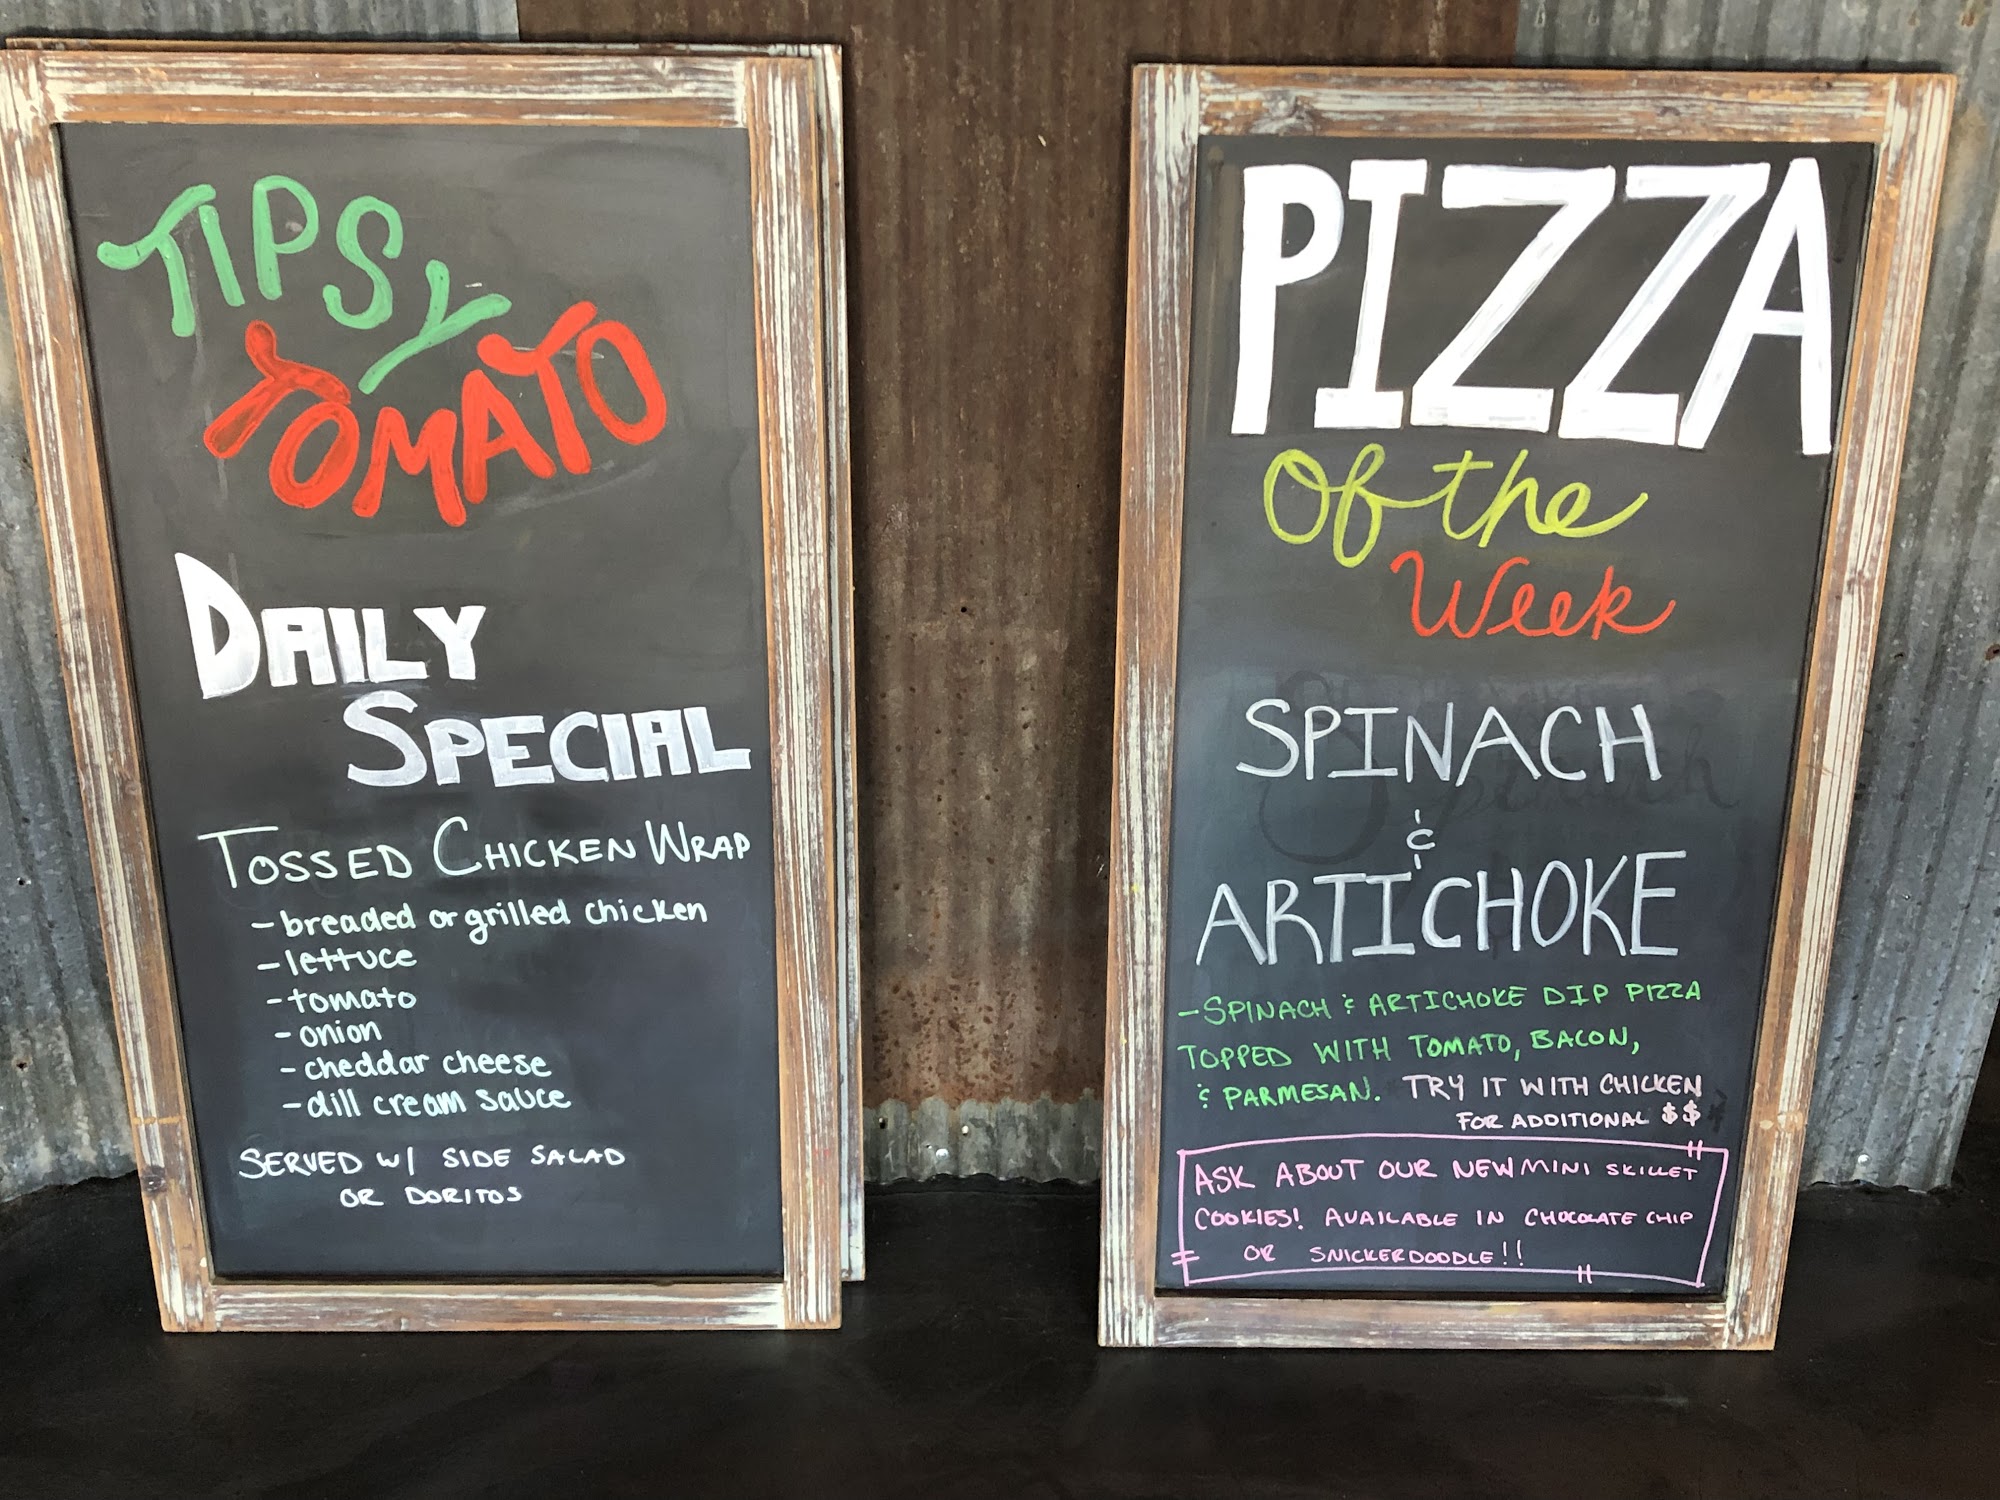 TIPSY
TOMATO
DAILY
SPECIAL
TOSSED CHICKEN WRAP
-breaded or grilled chicken
-lettuce
-tomato
-onion
-cheddar cheese
-dill cream sauce
SERVED W/ SIDE SALAD
OR DORITOS
PIZZA
Of the
Week
SPINACH
&
ARTICHOKE
-SPINACH & ARTICHOKE DIP PIZZA
TOPPED WITH TOMATO, BACON,
& PARMESAN. TRY IT WITH CHICKEN
FOR ADDITIONAL $$
ASK ABOUT OUR NEW MINI SKILLET
COOKIES! AVAILABLE IN CHOCOLATE CHIP
OR SNICKERDOODLE!!